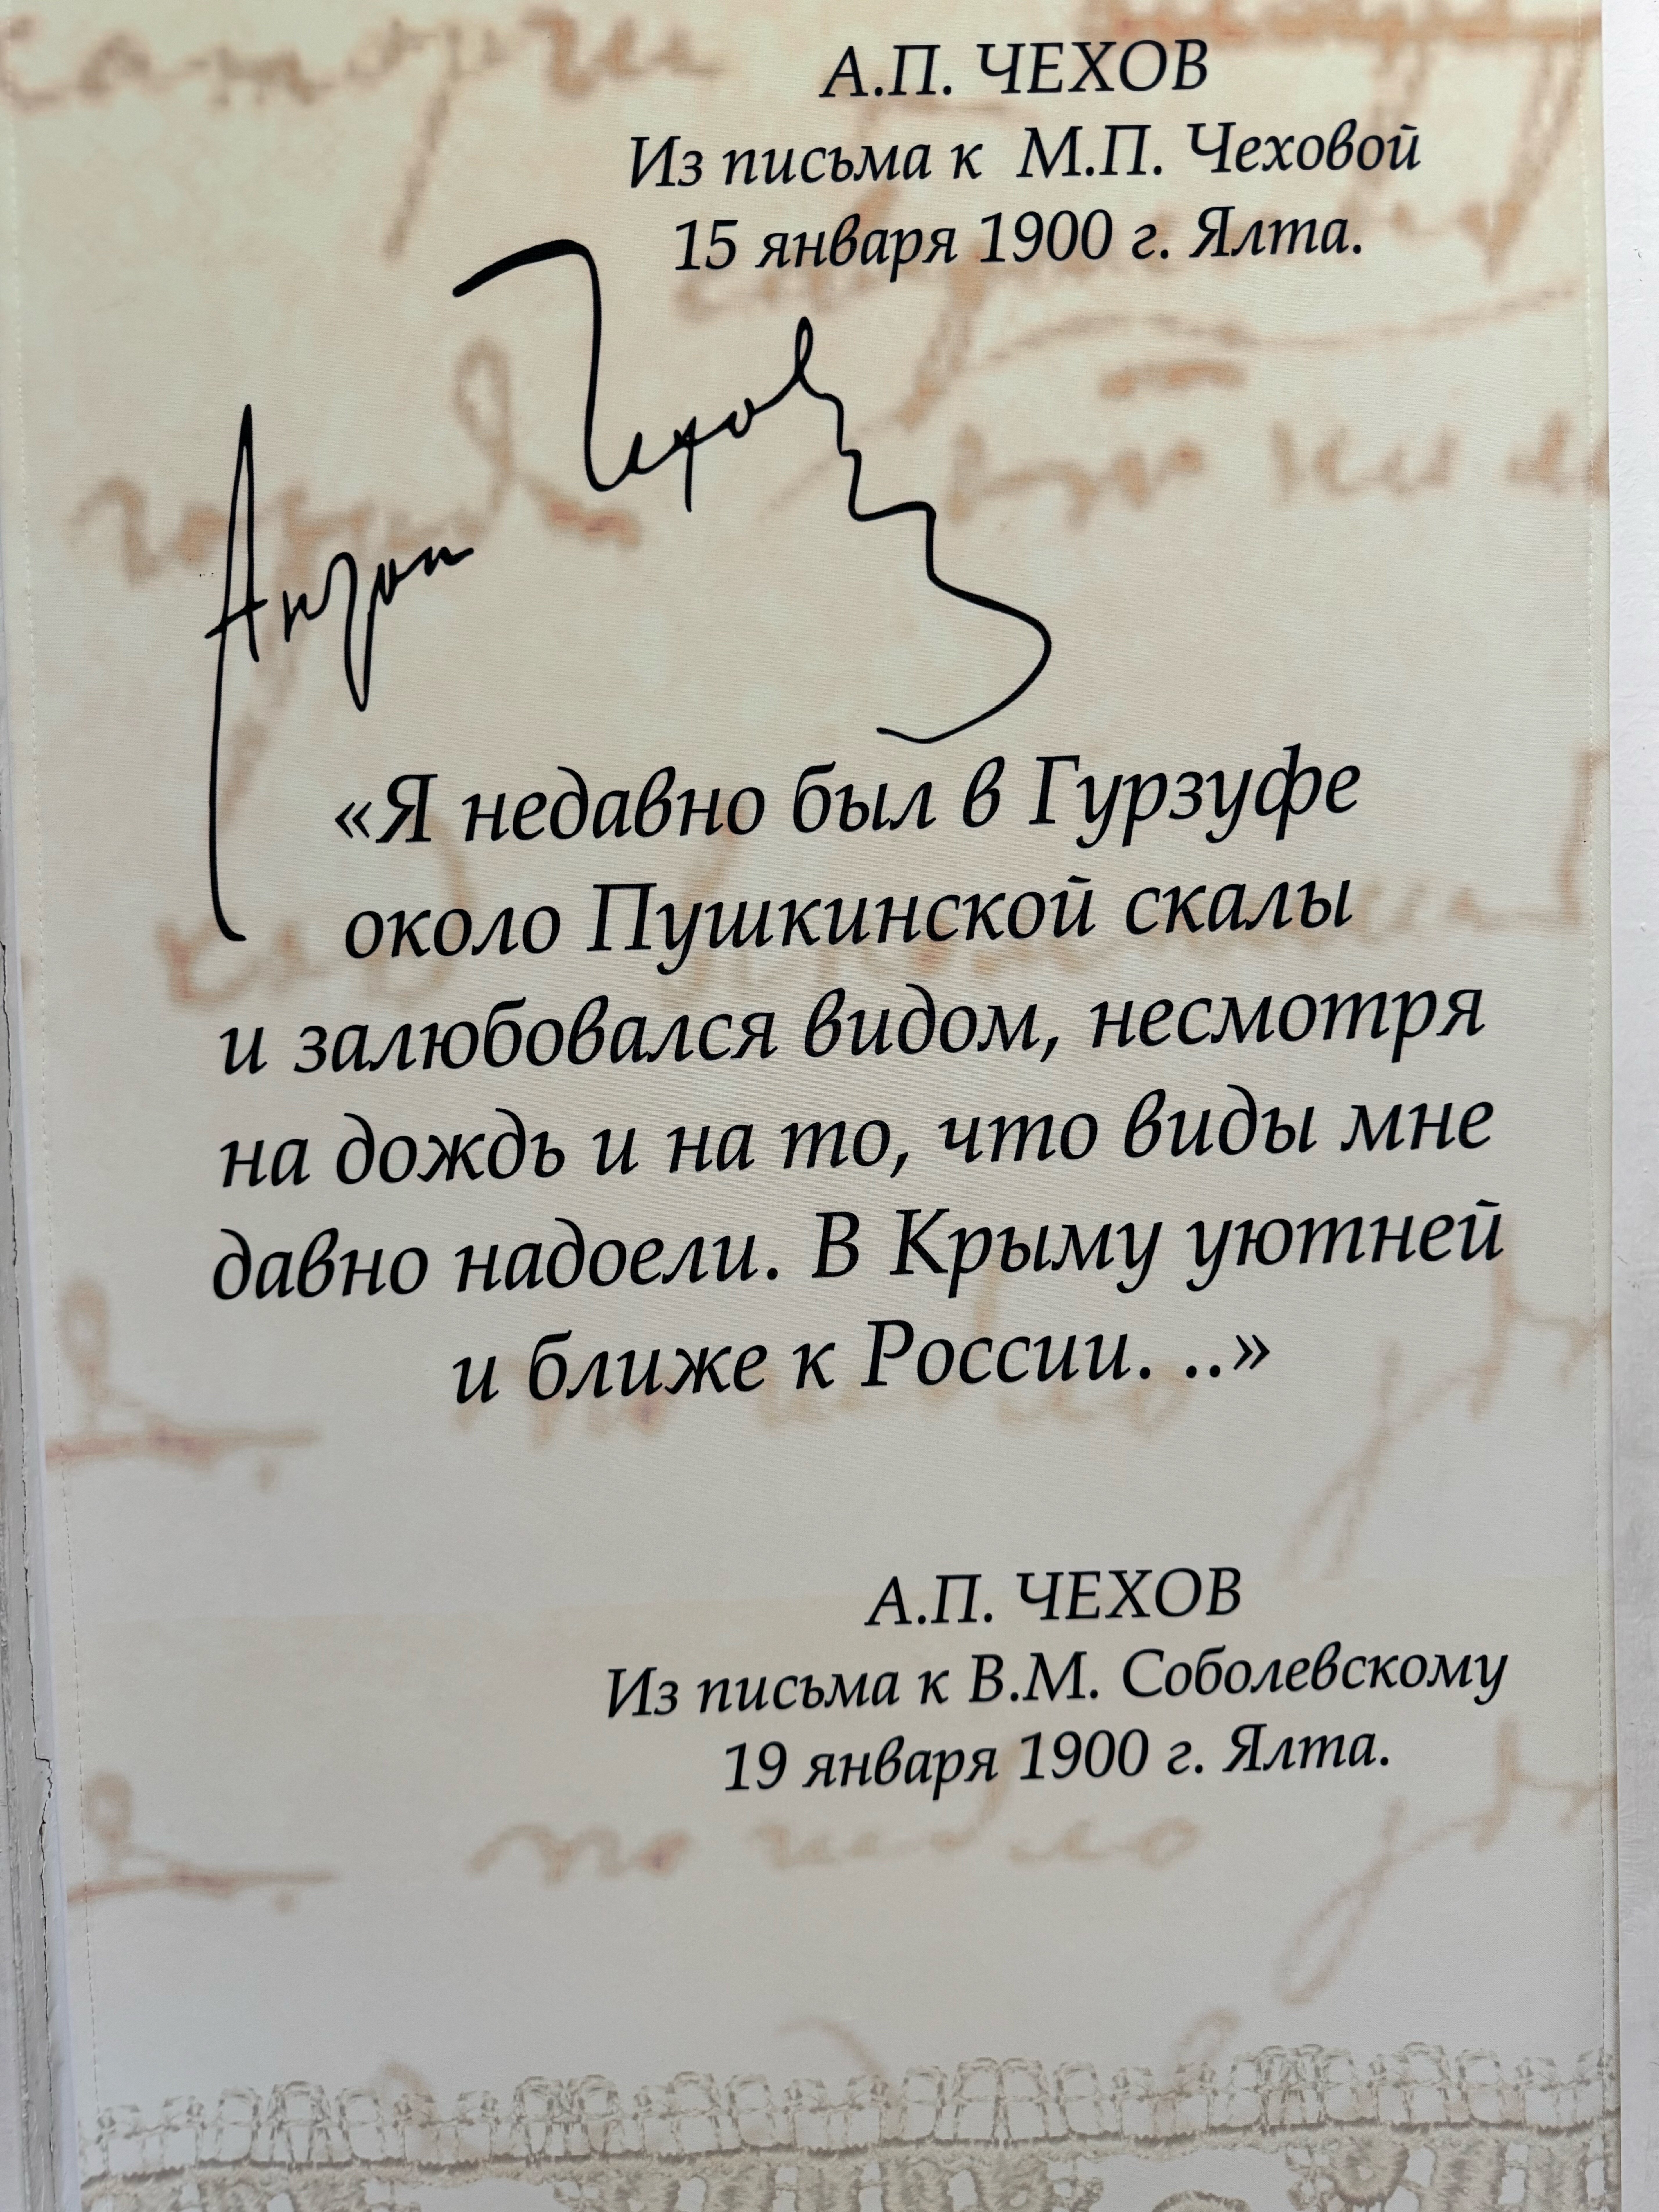 А.П. ЧЕХОВ
Из письма к М.П. Чеховой
15 января 1900 г. Ялта.
Антон Чехов
«Я недавно был в Гурзуфе
около Пушкинской скалы
и залюбовался видом, несмотря
на дождь и на то, что виды мне
давно надоели. В Крыму уютней
и ближе к России. ..»
А.П. ЧЕХОВ
Из письма к В.М. Соболевскому
19 января 1900 г. Ялта.